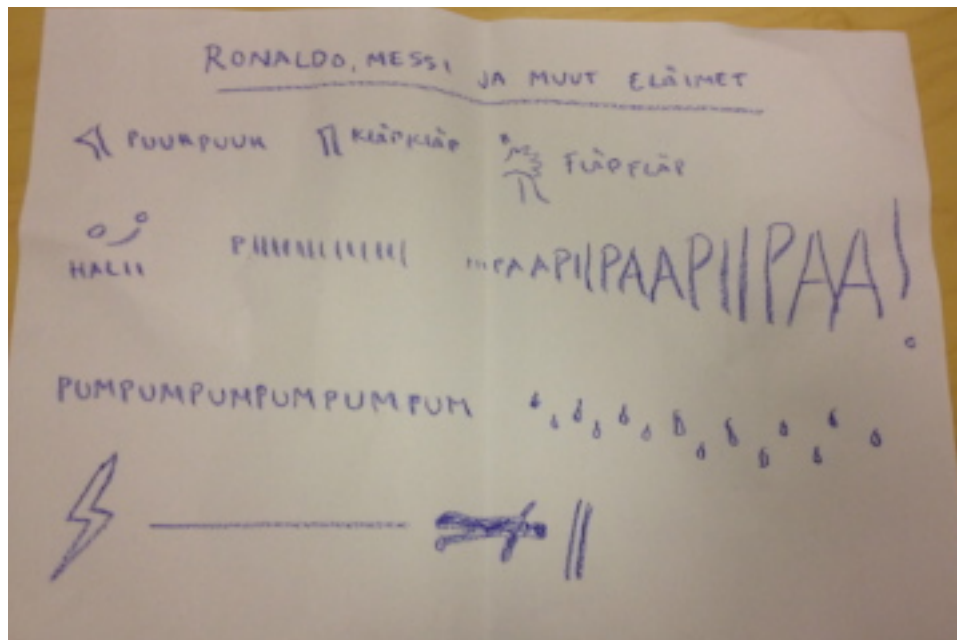 RONALDO, MESSI JA MUUT ELÄIMET
PUUKPUUK KLÄPKLÄP FLÄPFLÄP
HALII PIIIIIIIIIII ...PAAPIIPAAPIIPAA!
PUMPUMPUMPUMPUMPUM